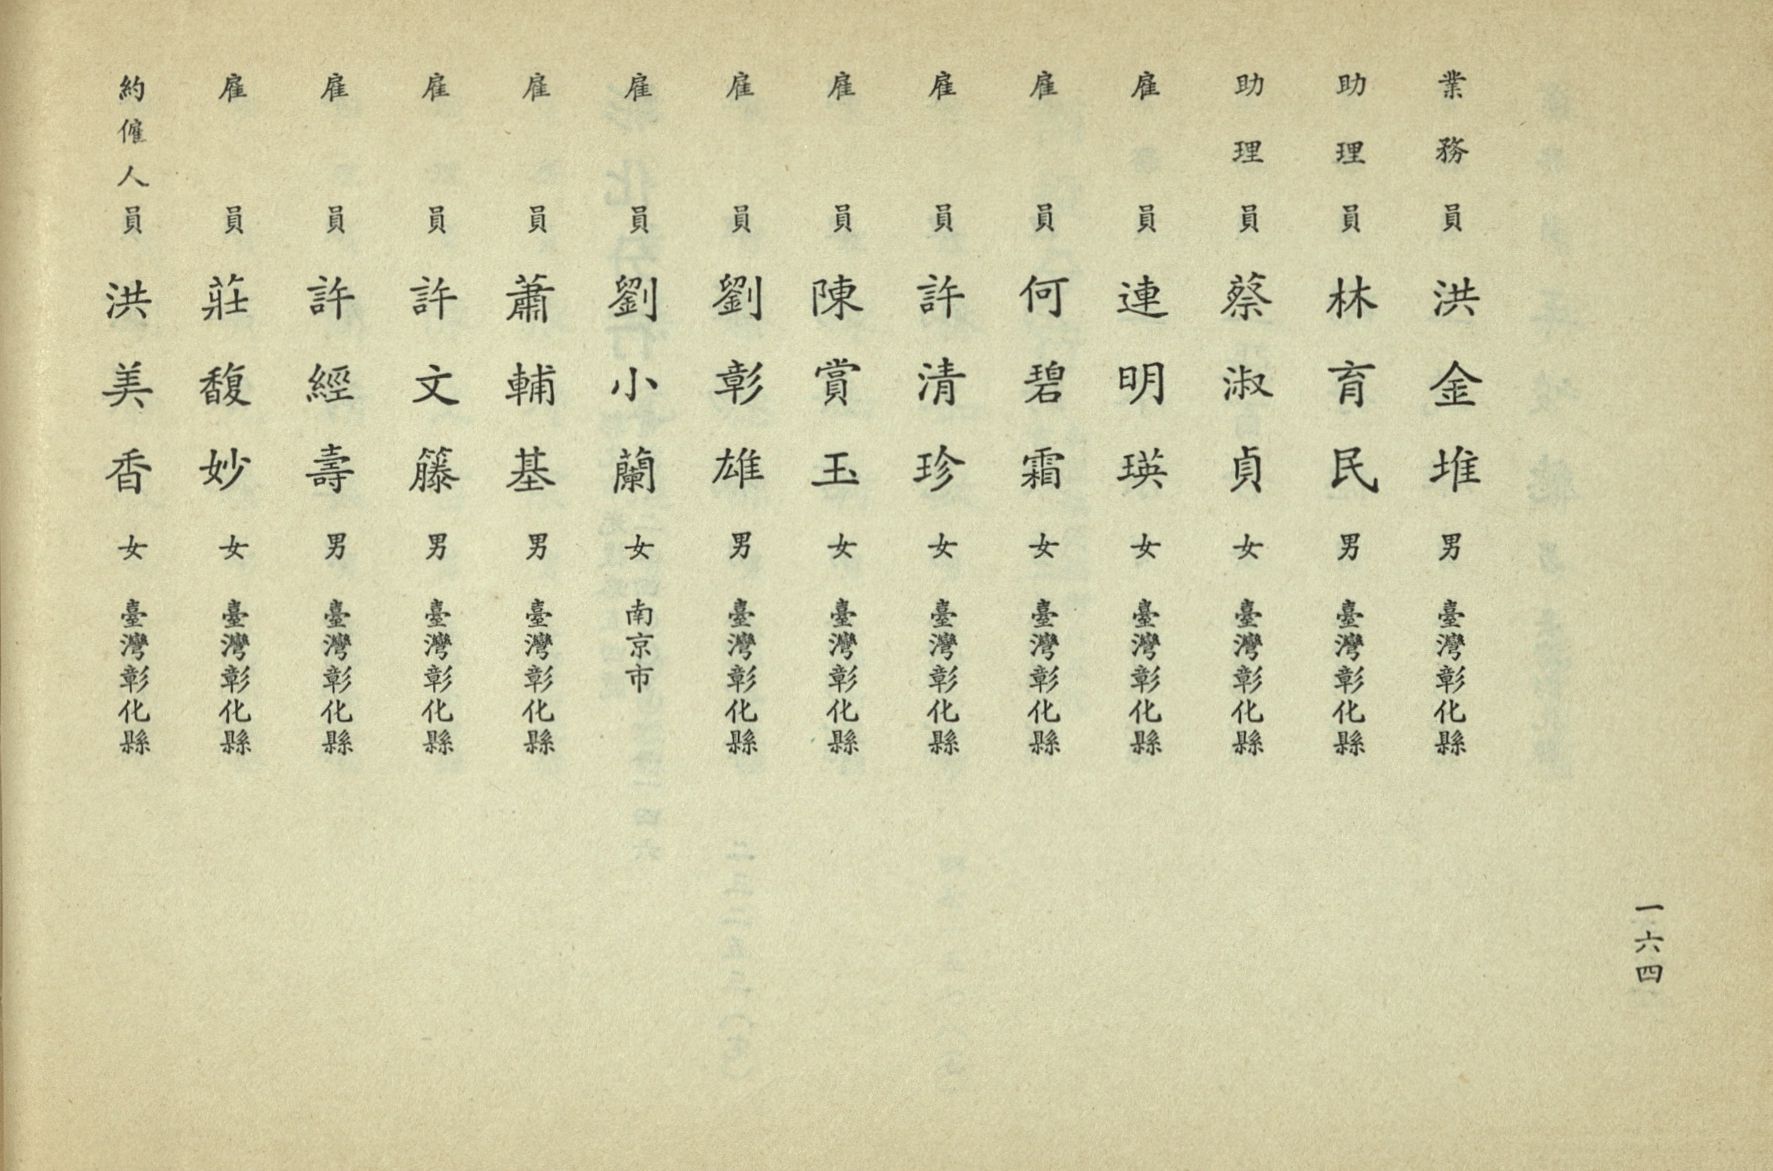 一六四
業務員 洪金堆 男 臺灣彰化縣
助理員 林育民 男 臺灣彰化縣
助理員 蔡淑貞 女 臺灣彰化縣
雇員 連明瑛 女 臺灣彰化縣
雇員 何碧霜 女 臺灣彰化縣
雇員 許清珍 女 臺灣彰化縣
雇員 陳賞玉 女 臺灣彰化縣
雇員 劉彰雄 男 臺灣彰化縣
雇員 劉小蘭 女 南京市
雇員 蕭輔基 男 臺灣彰化縣
雇員 許文籐 男 臺灣彰化縣
雇員 許經壽 男 臺灣彰化縣
雇員 莊馥妙 女 臺灣彰化縣
約僱人員 洪美香 女 臺灣彰化縣